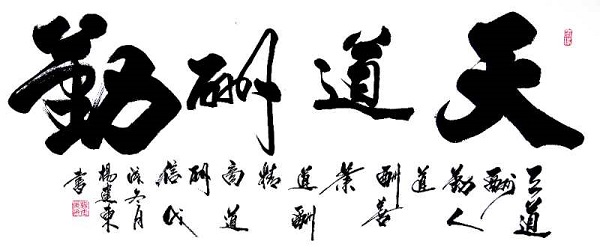 天道酬勤
天道
酬
勤人
道
酬善
業
道酬
精
商道
酬
信戊
戌冬月
楊建東
書